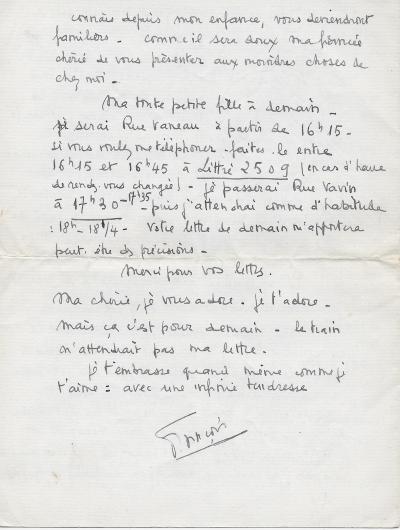 connais depuis mon enfance, vous deviendront
familiers - comme il sera doux ma fiancée
chérie de vous présenter aux moindres choses de
chez moi -
Ma toute petite fille à demain -
je serai Rue Vaneau à partir de 16h15 -
si vous voulez me téléphoner - faites-le entre
16h15 et 16h45 à Littré 2509 (en cas d'heure
de rendez-vous changée) - je passerai Rue Vavin
à 17h30 - 17h35 - puis j'attendrai comme d'habitude
: 18h - 18h1/4 - Votre lettre de demain m'apportera
peut-être des précisions -
Merci pour vos lettres.
Ma chérie, je vous adore - je t'adore -
mais ça c'est pour demain - le train
n'attendrait pas ma lettre.
je t'embrasse quand même comme je
t'aime : avec une infinie tendresse
François